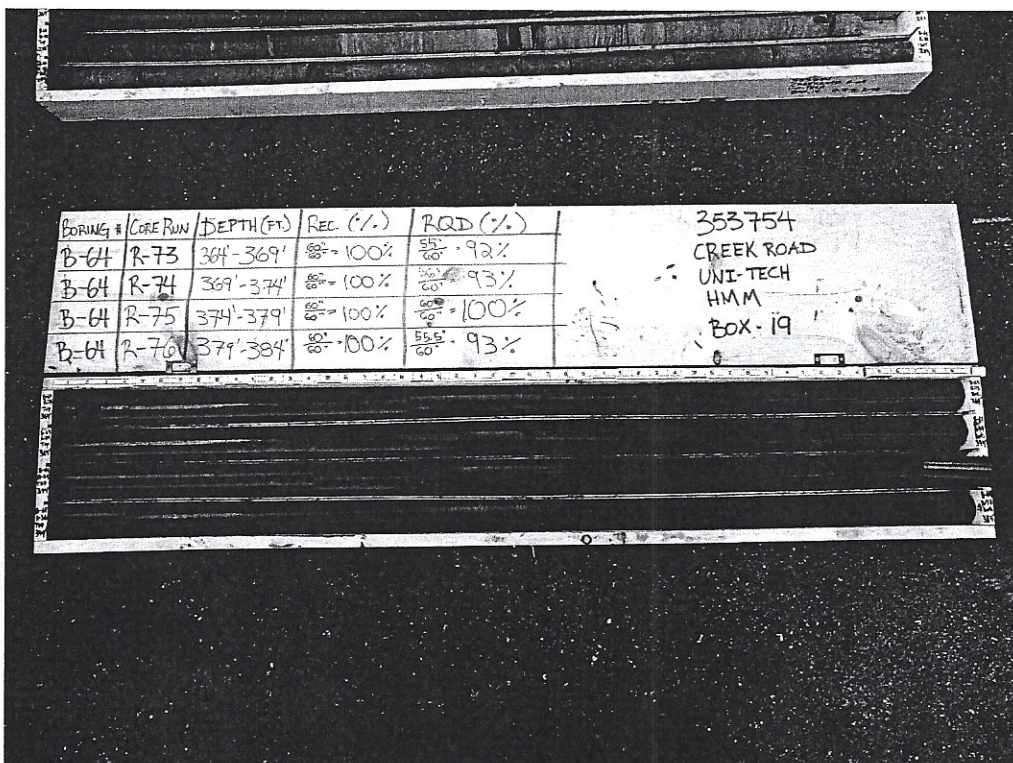 BORING # CORE RUN DEPTH (FT.) REC. (%) RQD (%)
B-64 R-73 364'-369' 60"/60" = 100% 55"/60" = 92%
B-64 R-74 369'-374' 60"/60" = 100% /60" 93%
B-64 R-75 374'-379' 60"/60" = 100% 60"/60" = 100%
B-64 R-76 379'-384' 60"/60" = 100% 55.5"/60" = 93%
353754
CREEK ROAD
UNI-TECH
HMM
BOX-19